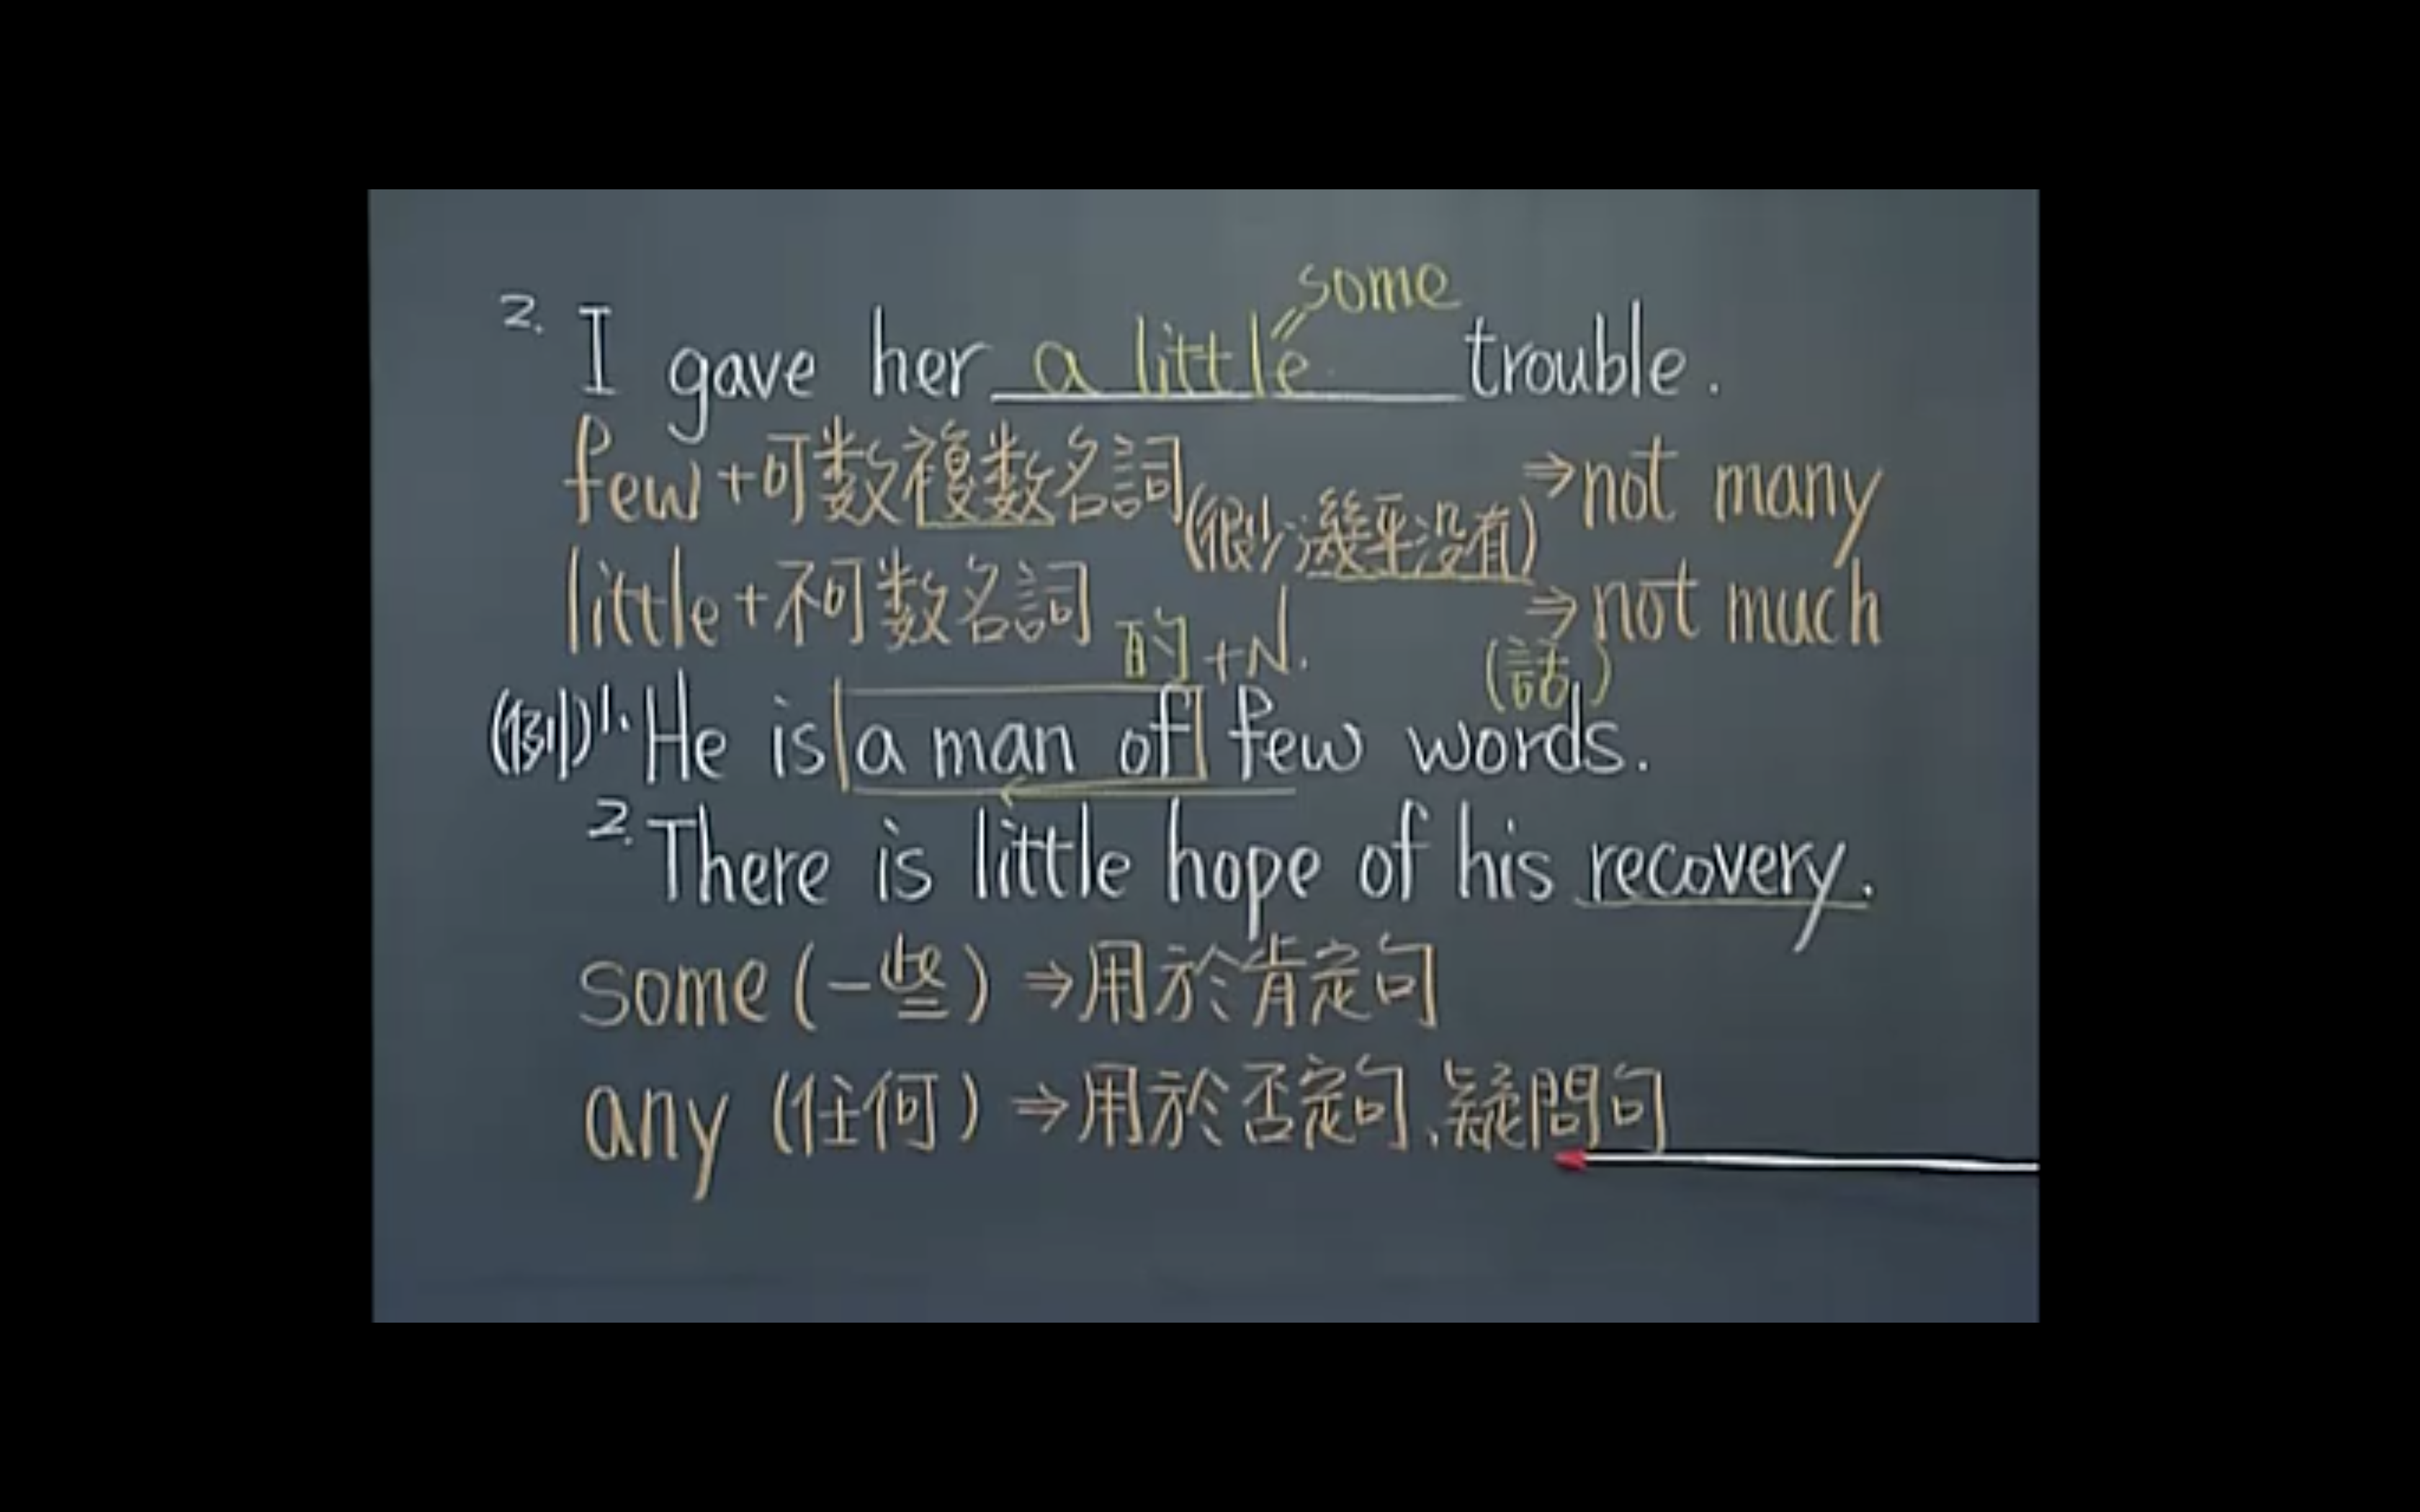 some
2. I gave her a little trouble.
few+可数複数名詞 (很少,幾乎没有) ⇒not many
little+不可数名詞 ⇒not much
的+N. (話)
(例)1. He is a man of few words.
2. There is little hope of his recovery.
some (一些) ⇒用於肯定句
any (任何) ⇒用於否定句、疑問句